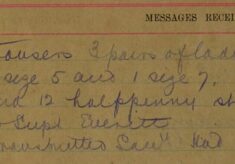 MESSAGES RECEI
Trousers 3 pairs of lad
size 5 and 1 size 7.
and 12 halfpenny st
Supt Everett
Transmitted Sam" Had